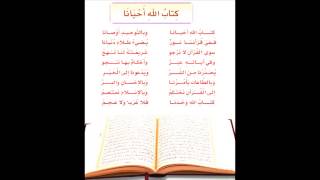 كتاب الله أحيانا
كتاب الله أحيانا وبالتوحيد أوصانا
ففي قرآننا نور يضيء ظلام دنيانا
سوى القرآن لا نرجو شريعته لنا نهج
وفي آياته عبر وأحكام بها ننجو
يحذرنا من الشر ويدعونا إلى الخير
وبالطاعات يأمرنا وبالإحسان والبر
إلى القرآن نحتكم وبالإسلام نعتصم
كتاب الله وحدنا فلا عرب ولا عجم